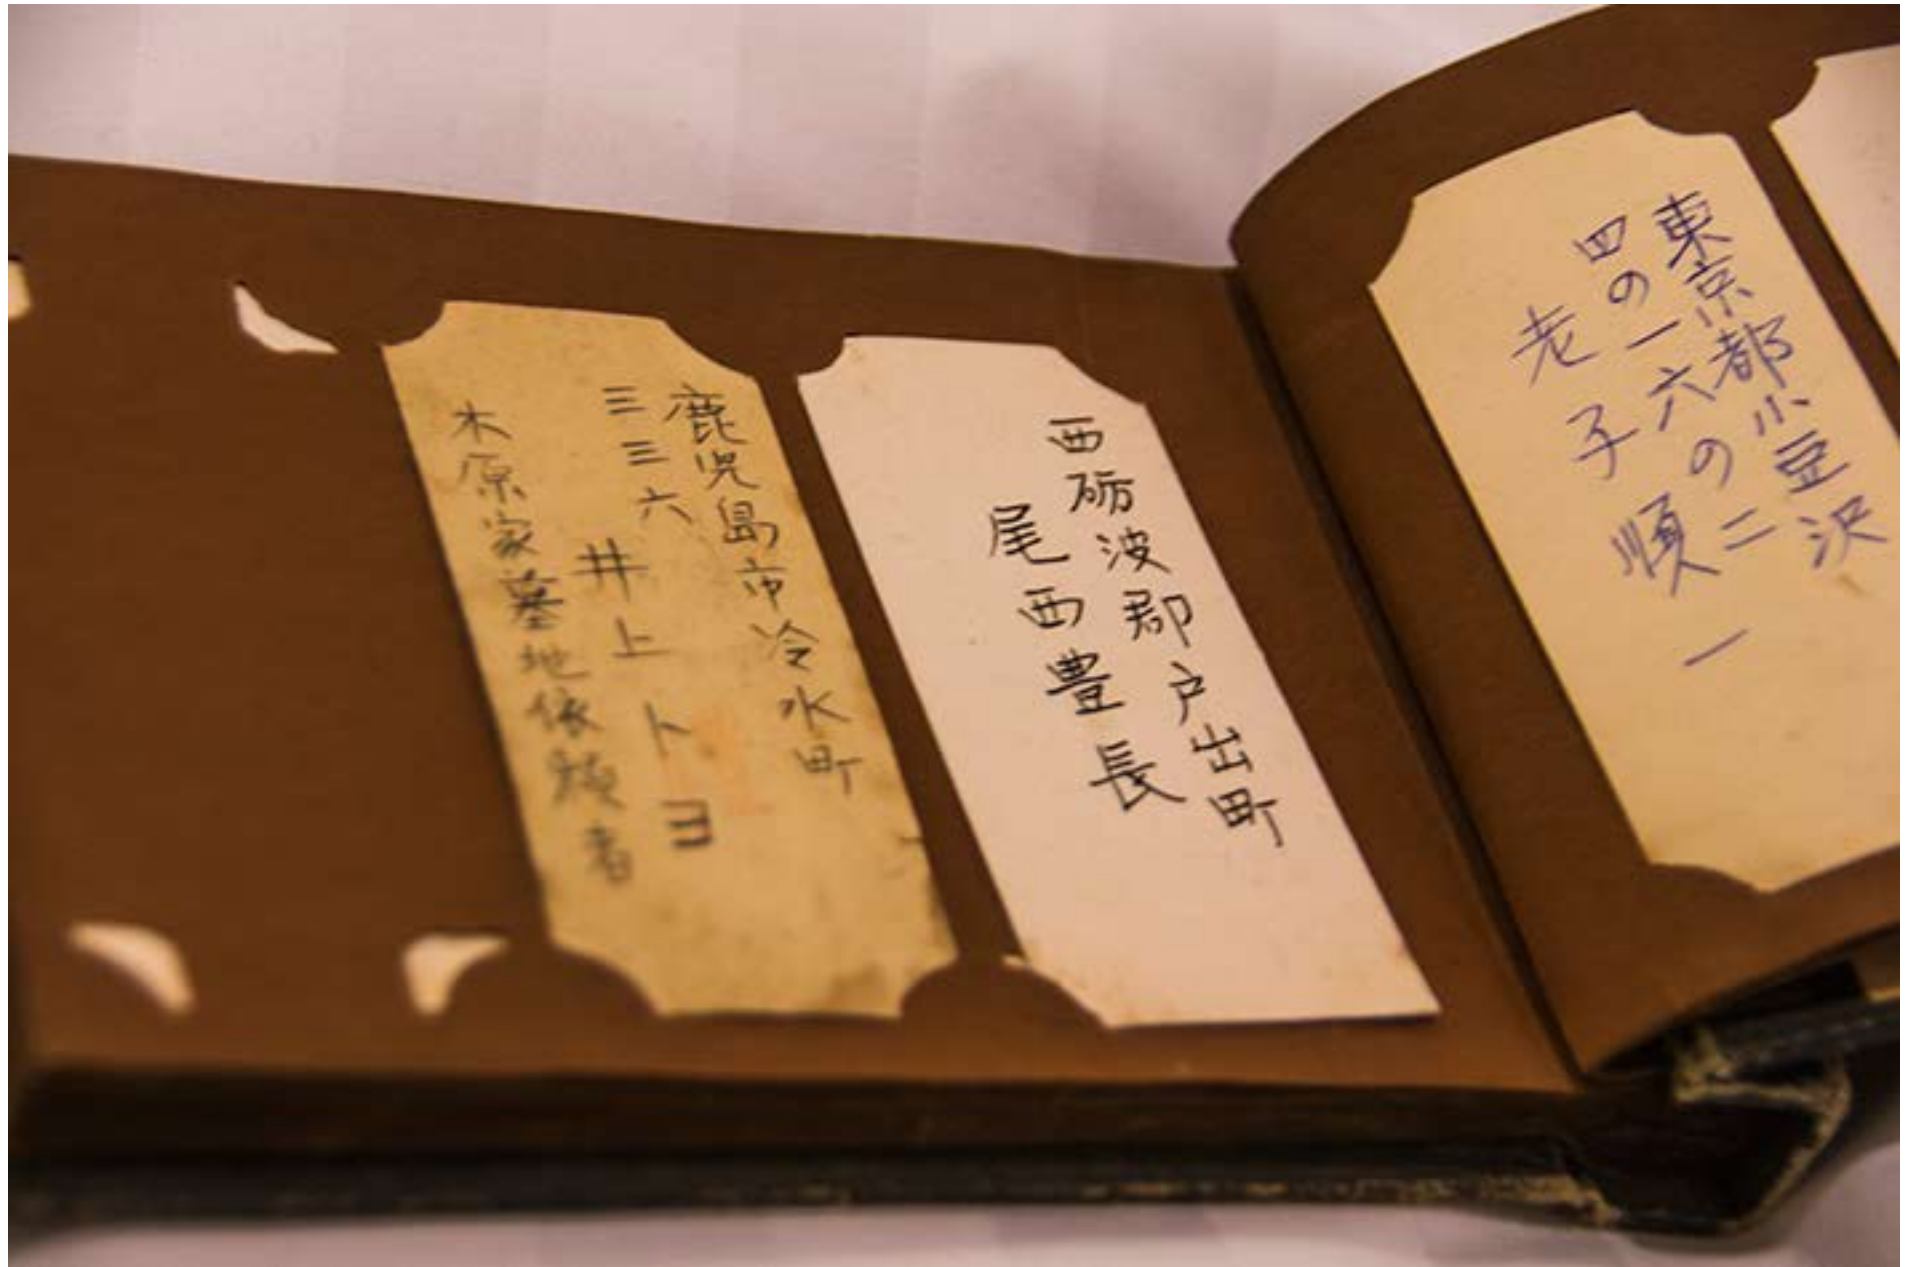 東京都小豆沢
四の一六の二
老子順一
西砺波郡戸出町
尾西豊長
鹿児島市冷水町
三三六
井上トヨ
木原家墓地依頼者